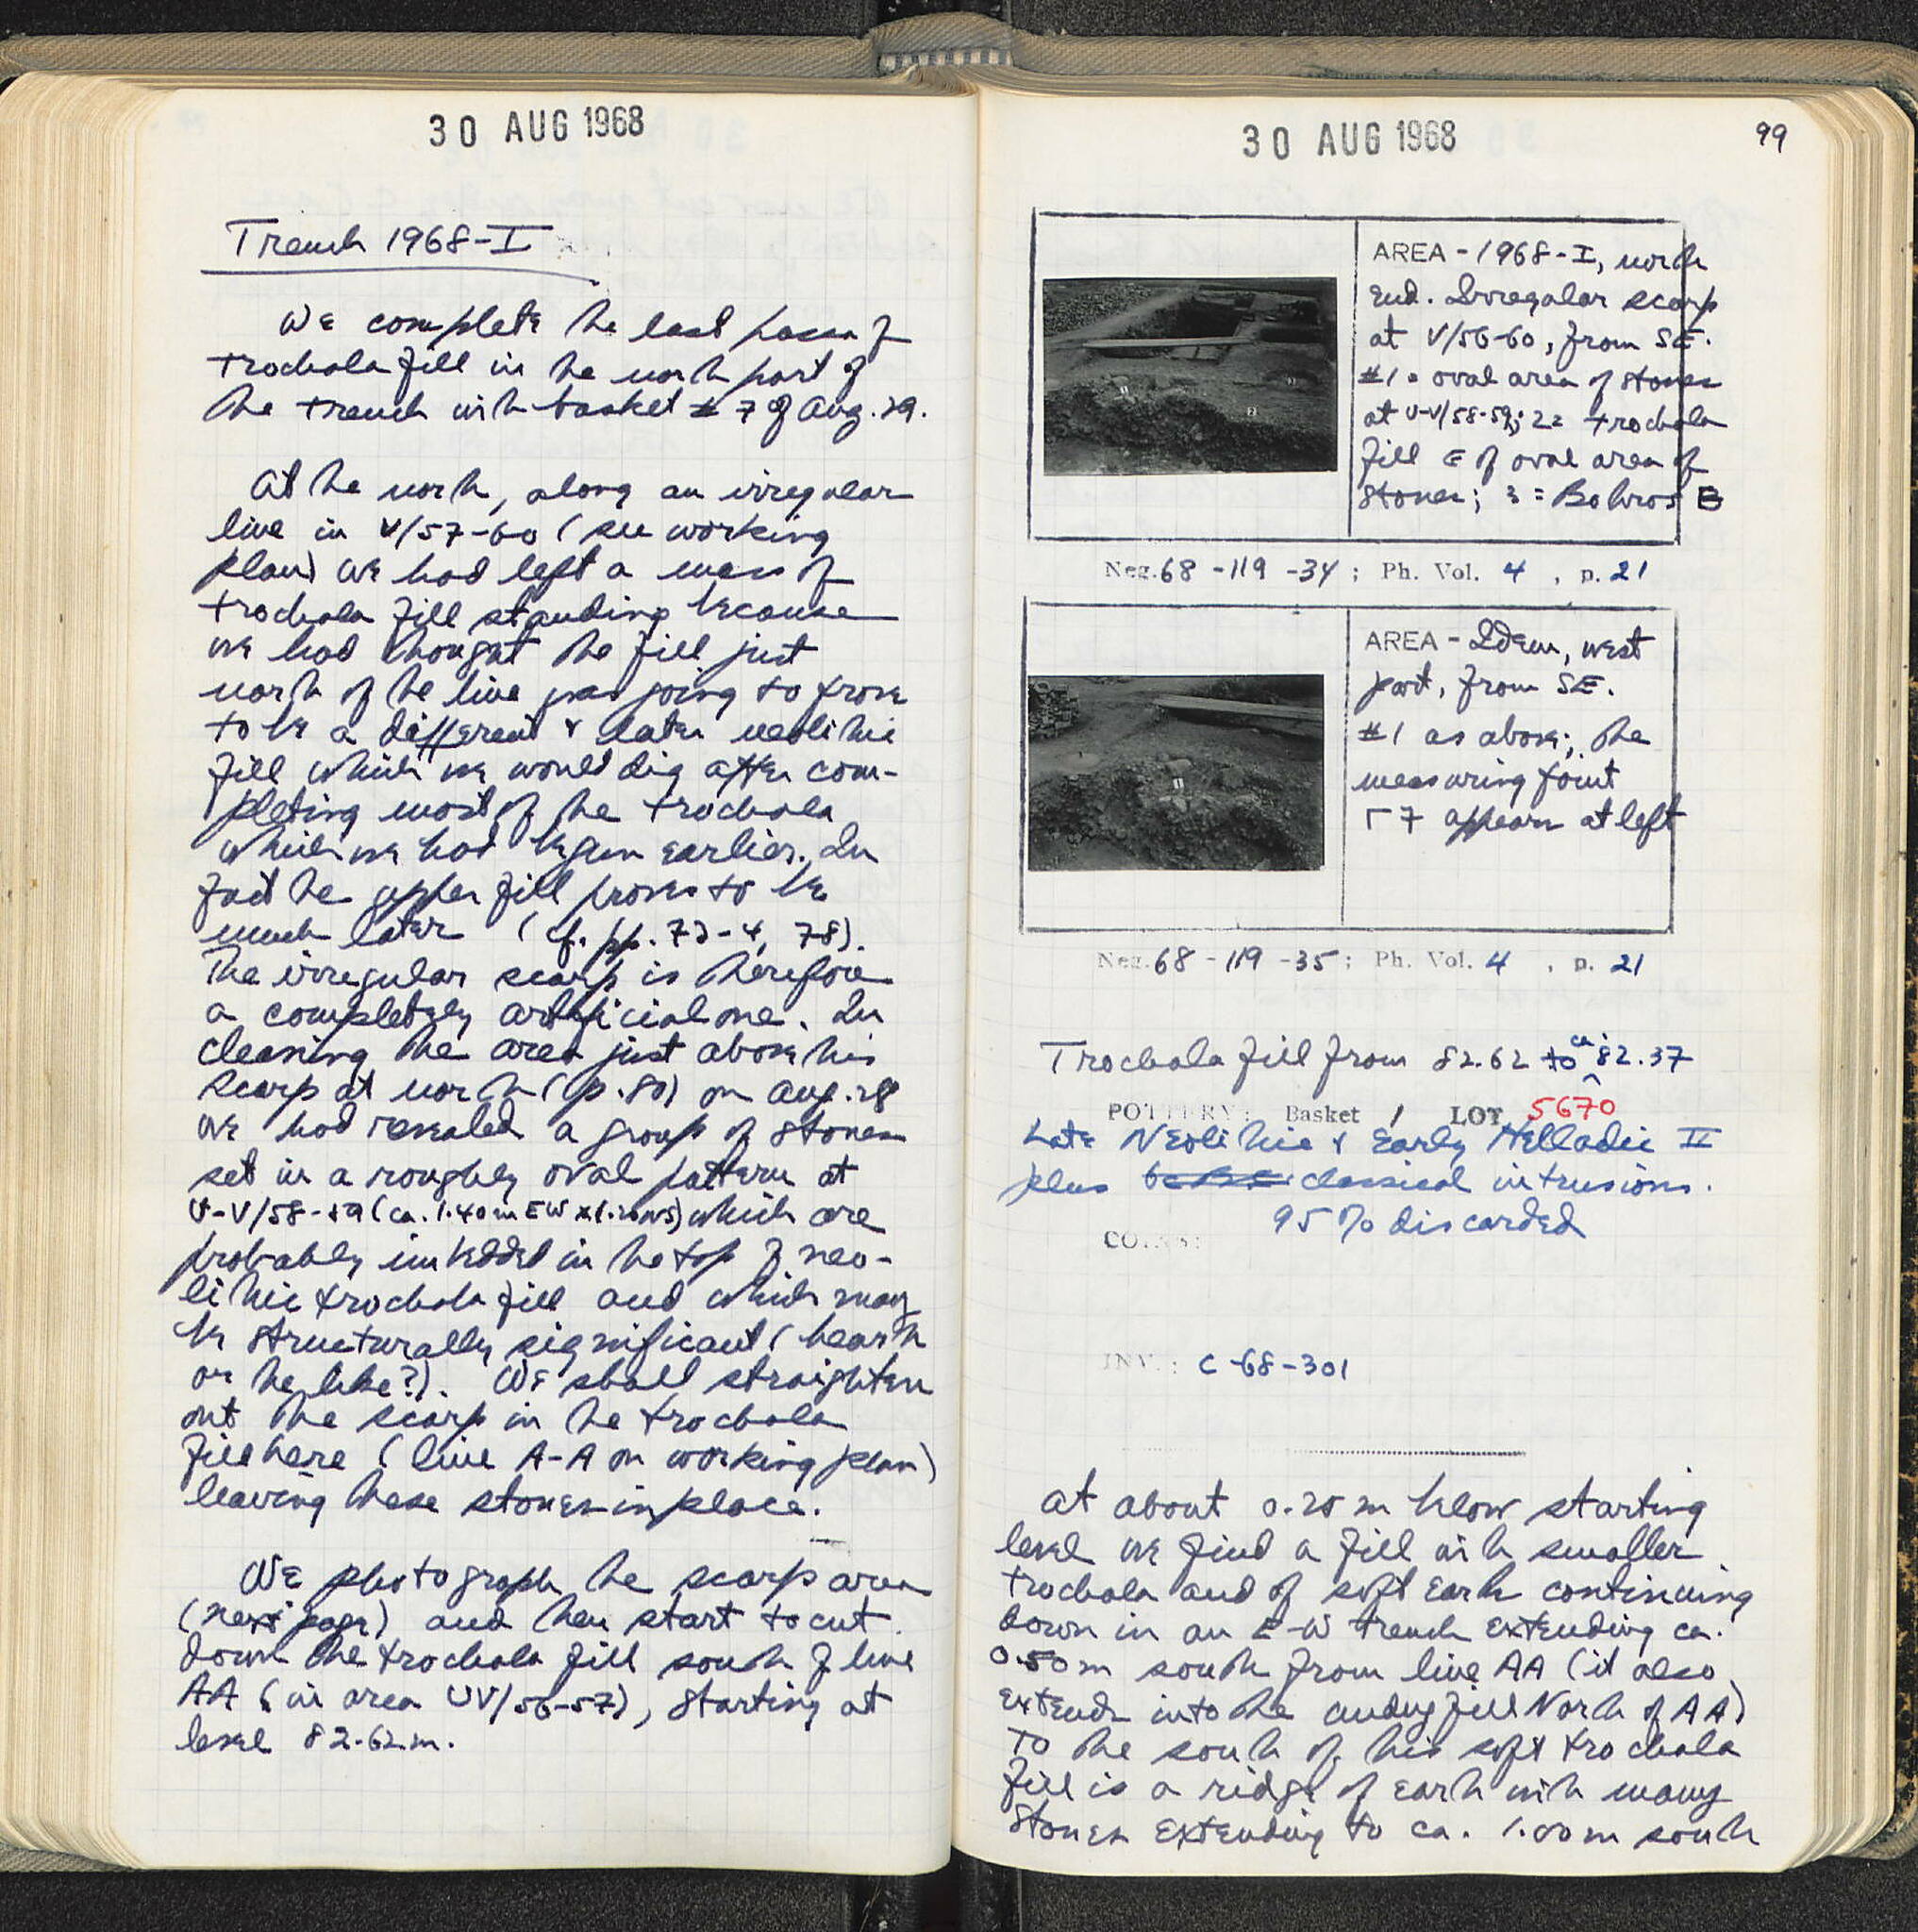 30 AUG 1968
Trench 1968-I
We complete the last passes of
trochala fill in the north part of
the trench with basket # 7 of Aug. 29.
At the north, along an irregular
line in V/57-60 (see working
plan) we had left a mass of
trochala fill standing because
we had thought the fill just
north of the line was going to prove
to be a different & later neolithic
fill which we would dig after com-
pleting most of the trochala
which we had begun earlier. In
fact the upper fill proves to be
much later (cf. pp. 73-4, 78).
The irregular scarp is therefore
a completely artificial one. In
cleaning the area just above this
scarp at north (p. 80) on Aug. 28
we had revealed a group of stones
set in a roughly oval pattern at
U-V/58-59 (ca. 1.40m EW x 1.20 NS) which are
probably imbedded in the top of neo-
lithic trochala fill and which may
be structurally significant (hearth
or the like?). We shall straighten
out the scarp in the trochala
fill here (line A-A on working plan)
leaving these stones in place.
We photograph the scarp area
(next page) and then start to cut
down the trochala fill south of line
AA (in area UV/56-57), starting at
level 82.62 m.
30 AUG 1968
99
AREA - 1968-I, north
end. Irregular scarp
at V/56-60, from SE.
#1 = oval area of stones
at U-V/58-59; 2 = trochala
fill E of oval area of
stones; 3 = Bothros B
Neg. 68-119-34; Ph. Vol. 4, p. 21
AREA - Idem, west
part, from SE.
#1 as above; the
measuring point
Γ7 appears at left
Neg. 68-119-35; Ph. Vol. 4, p. 21
Trochala fill from 82.62 to ca. 82.37
POTTERY: Basket 1 LOT 5670
Late Neolithic & Early Helladic II
plus classical intrusions.
95% discarded
COINS:
INV.: C-68-301
At about 0.25 m below starting
level we find a fill with smaller
trochala and of soft earth continuing
down in an E-W trench extending ca.
0.50 m south from line AA (it also
extends into the undug fill North of AA)
To the south of this soft trochala
fill is a ridge of earth with many
stones extending to ca. 1.00 m south